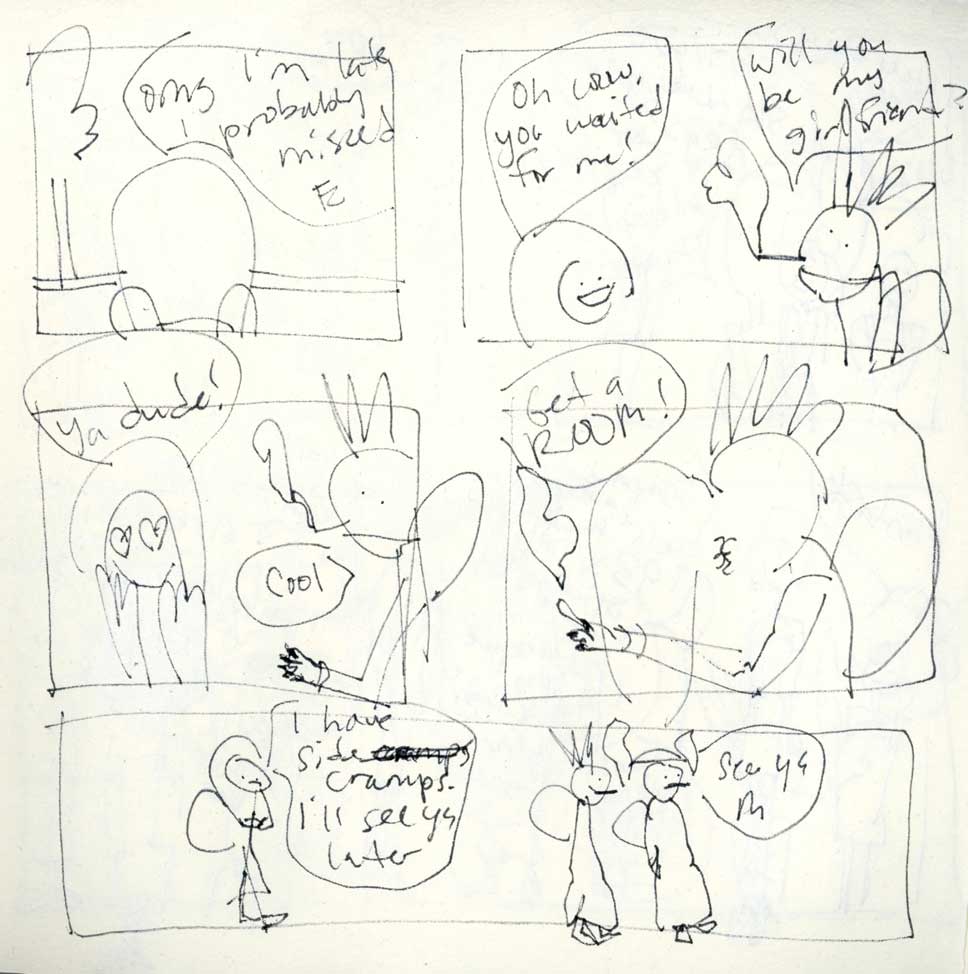 omg i'm late
i probably
missed
E
Oh wow,
you waited
for me!
will you
be my
girlfriend?
ya dude!
Cool
Get a
ROOM!
I have
side cramps
cramps.
I'll see ya
later
see ya
M